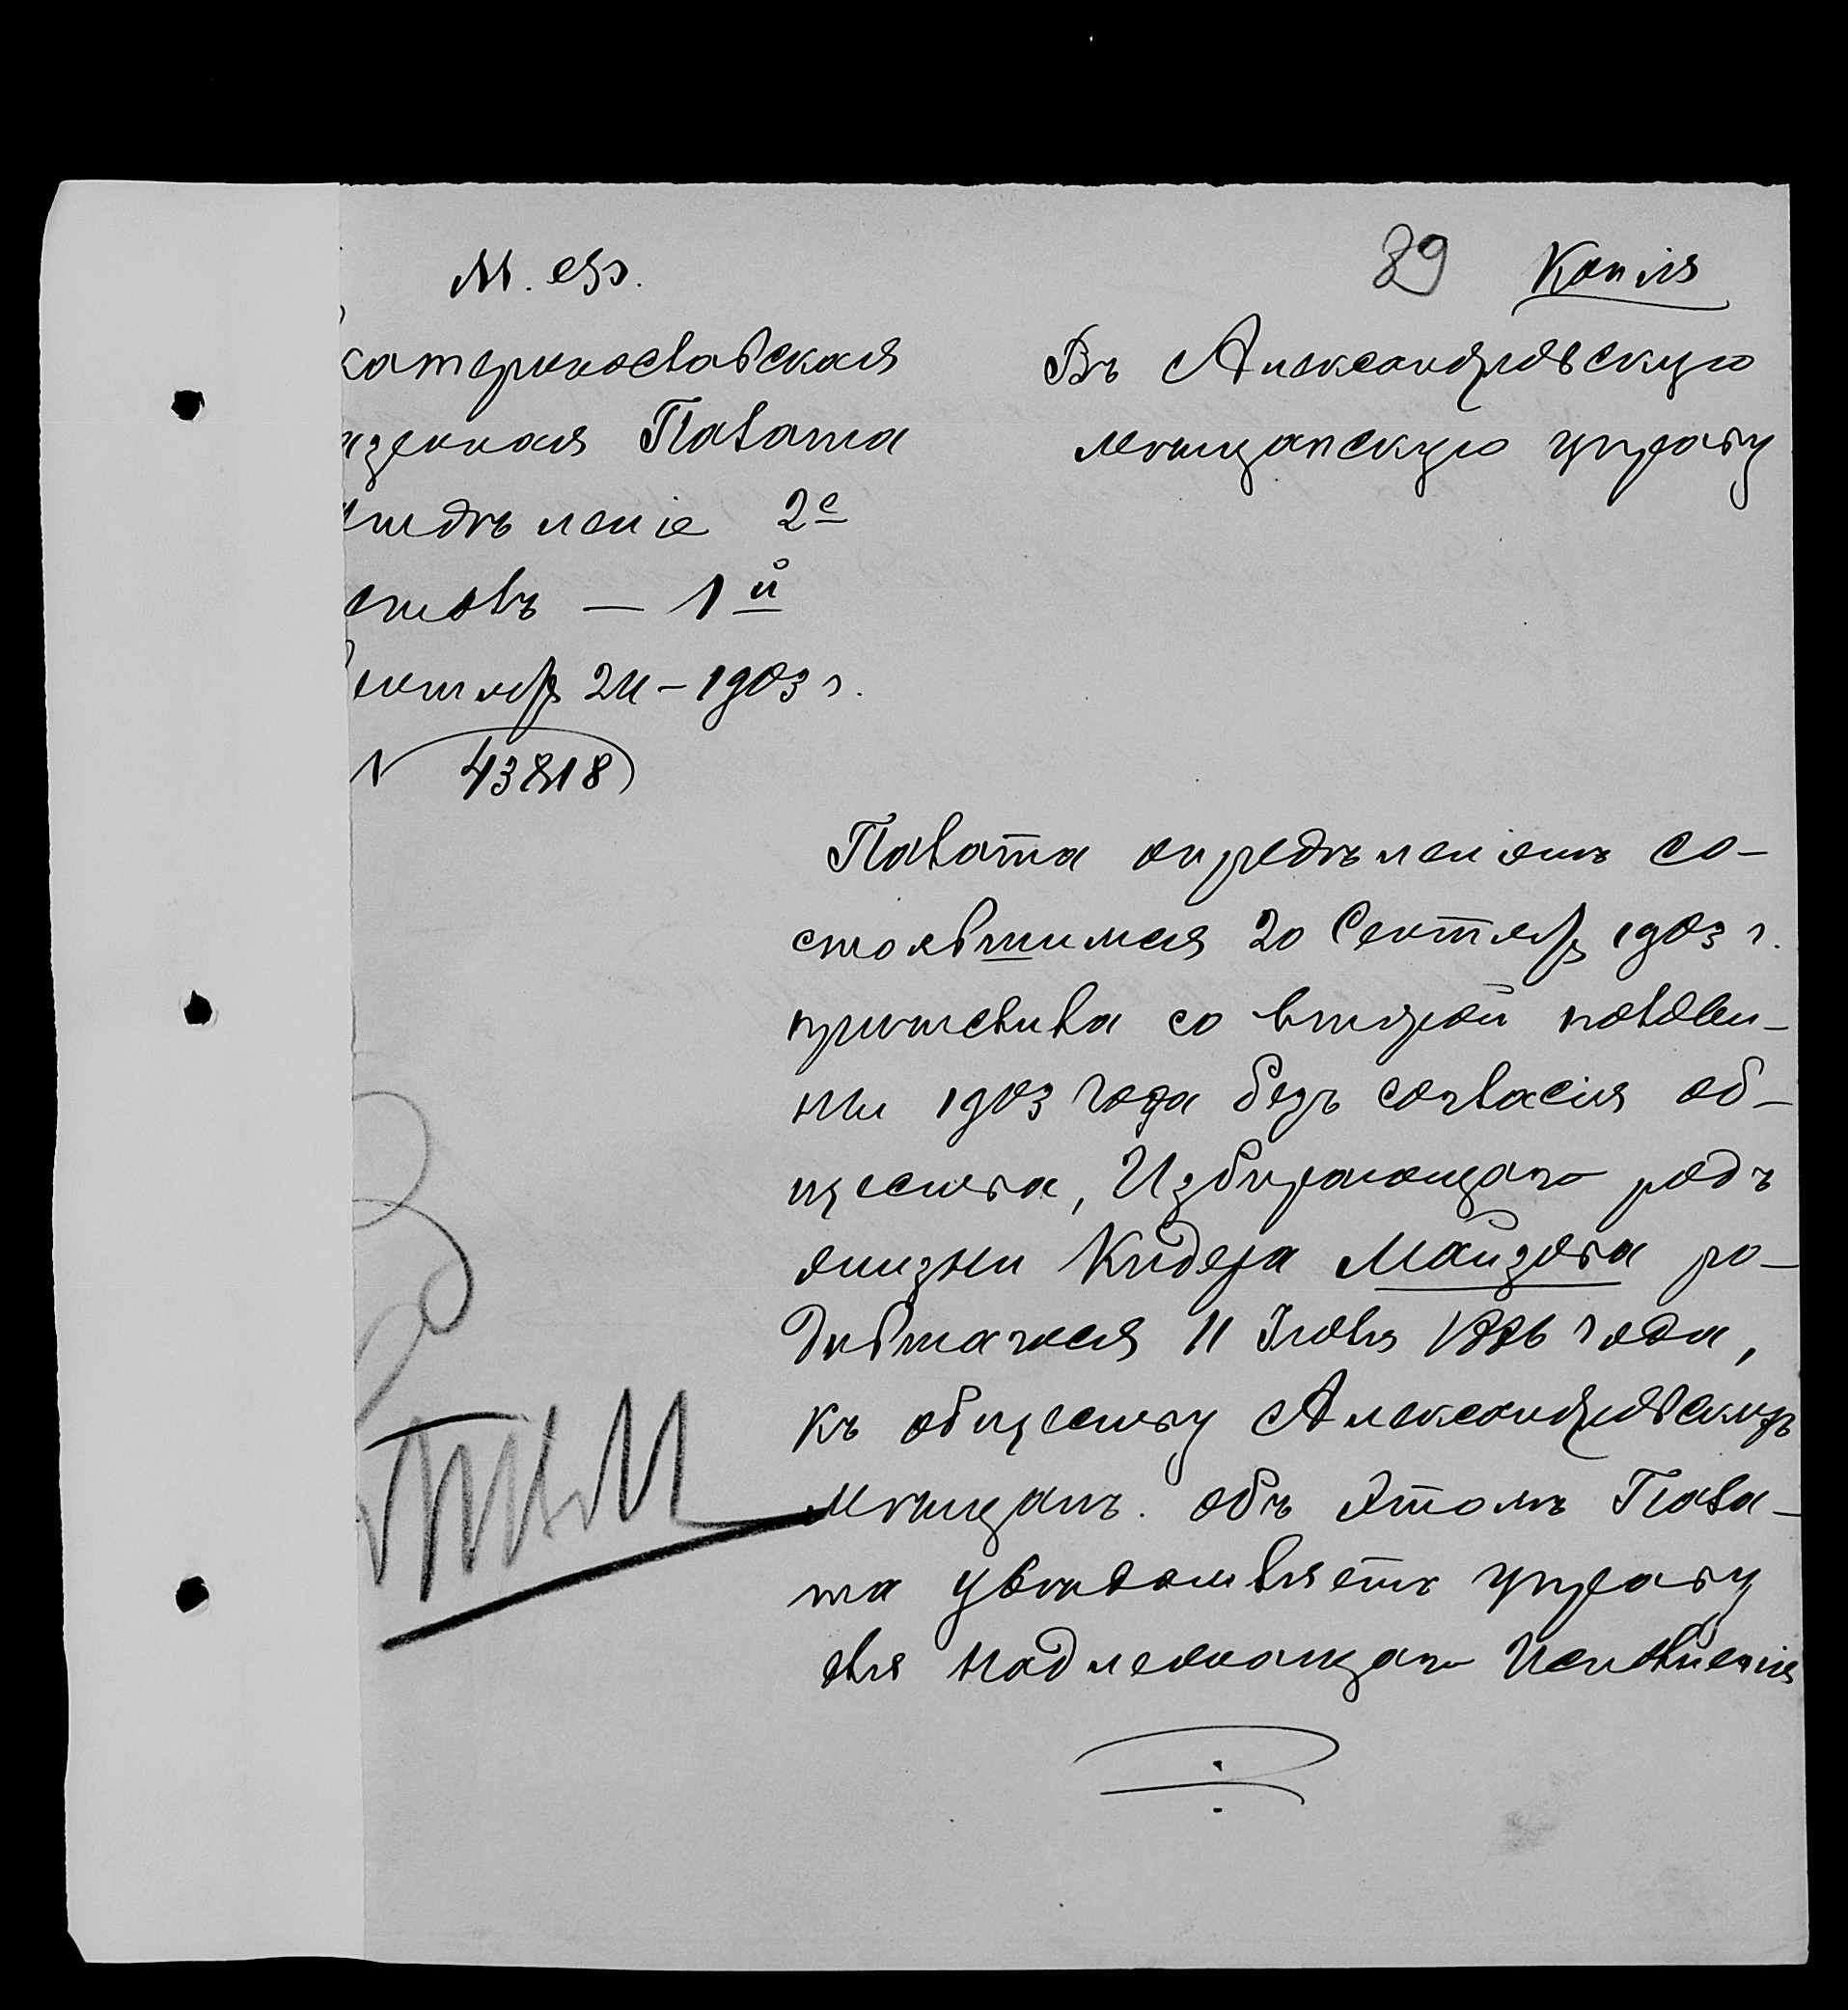 М. вд.
89 Копія
катеринославская
азенная Палата
тдѣленіе 2е
столъ — 1й
ентябр 24 – 1903 г.
№ 43818
Въ Александровскую
мѣщанскую управу
Палата опредѣленіемъ со-
стоявшимся 20 Сентябр 1903 г.
причислила со второй полови-
ны 1903 года безъ согласія об-
щества, Избирающаго родъ
жизни Кидера Майзота ро-
дившагося 11 Іюля 1886 года,
къ обществу Александровскихъ
мѣщанъ. Объ этомъ Пала-
та увѣдомляетъ управу
для надлежащаго Исполненія